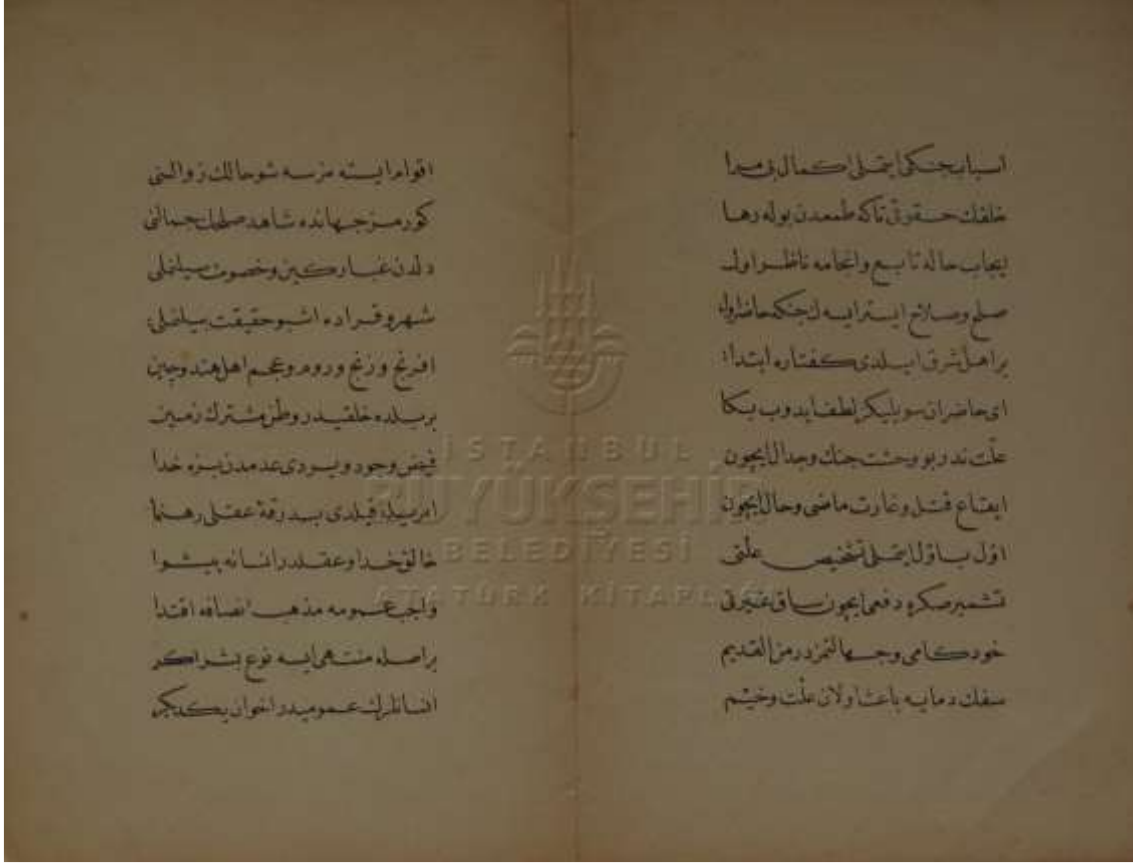 اسباب جنكى ايتملى اكمال بى مرا
خلقك حقوقى تاكه طمعدن بوله رها
ايجاب حاله تابع وانجامه ناظر اول
صلح وصلاح ايسترايسه ك جنكه حاضر اول
بر اهل شرق ايلدى كفتاره ابتدا:
اى حاضران سويليكز لطف ايدوب بكا
علت ندر بو وحشت جنك وجدال ايچون
ايقاع قتل وغارت ماضى وحال ايچون
اول باول ايتملى تشخيص علتى
تشمير صكره دفعى ايچون ساق غيرتى
خودكامى وجهالتمزدر من القديم
سفك دمايه باعث اولان علت وخيم
اقوام ايسته مزسه شو حالك زوالنى
كورمز جهانده شاهد صلحك جمالنى
دلدن غبار كين وخصومت سيلنملى
شهر وقراده اشبو حقيقت بيلنملى:
افرنج وزنج وروم وعجم اهل هند وچين
بر بلده خلقيدر وطن مشترك زمين
فيض وجود ويردى عدمدن بزه خدا
امريله قيلدى بدرقهٔ عقلى رهنما
خالق خدا وعقلدر انسانه پيشوا
واجب عمومه مذهب انصافه اقتدا
بر اصله منتهى ايسه نوع بشر اكر
انسانلرك عموميدر اخوان يكديكر
ISTANBUL
BÜYÜKŞEHİR
BELEDİYESİ
ATATÜRK KİTAPLIĞI